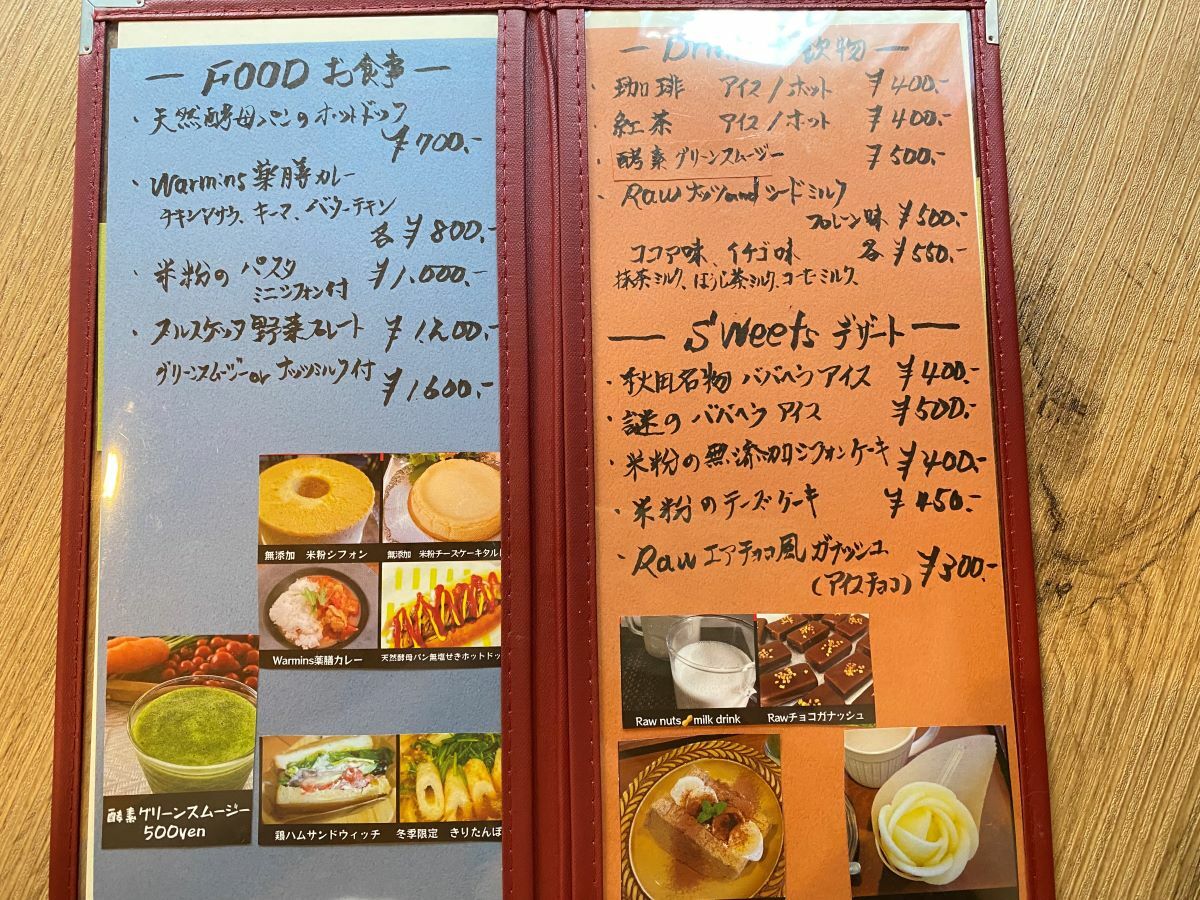 — FOOD お食事 —
・天然酵母パンのホットドッグ
¥700.-
・Warmins薬膳カレー
チキンマサラ、キーマ、バターチキン
各 ¥800.-
・米粉の パスタ ¥1.000.-
ミニシフォン付
野菜プレート ¥1.200.-
グリーンスムージーor ナッツミルク付
¥1.600.-
無添加 米粉シフォン
無添加 米粉チーズケーキタルト
Warmins薬膳カレー
天然酵母パン無塩せきホットドッ
酵素グリーンスムージー
500yen
鶏ハムサンドウィッチ
冬季限定 きりたんぽ
— 飲物 —
・珈琲 アイス/ホット ¥400.-
・紅茶 アイス/ホット ¥400.-
・酵素グリーンスムージー ¥500.-
・Rawナッツandシードミルク
プレーン味 ¥500.-
ココア味、イチゴ味 各 ¥550.-
抹茶ミルク、ほうじ茶ミルク、コーヒーミルク、
— Sweets デザート —
・秋田名物 ババヘラアイス ¥400.-
・謎の ババヘラ アイス ¥500.-
・米粉の無添加シフォンケーキ ¥400.-
・米粉のチーズケーキ ¥450.-
・Rawエアチョコ風ガナッシュ
(アイスチョコ) ¥300.-
Raw nuts milk drink
Rawチョコガナッシュ